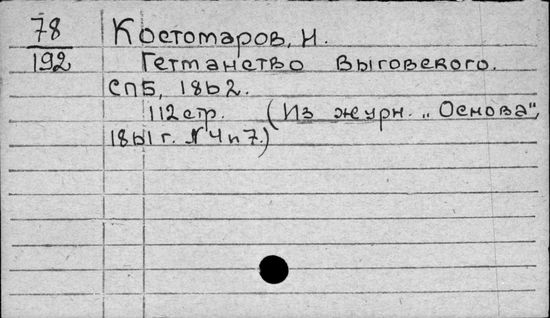 78
192
Костомаров, Н.
Гетманство Выговского.
СПБ, 1862.
112 стр. (Из журн. „Основа",
1861 г. № 4 и 7.)